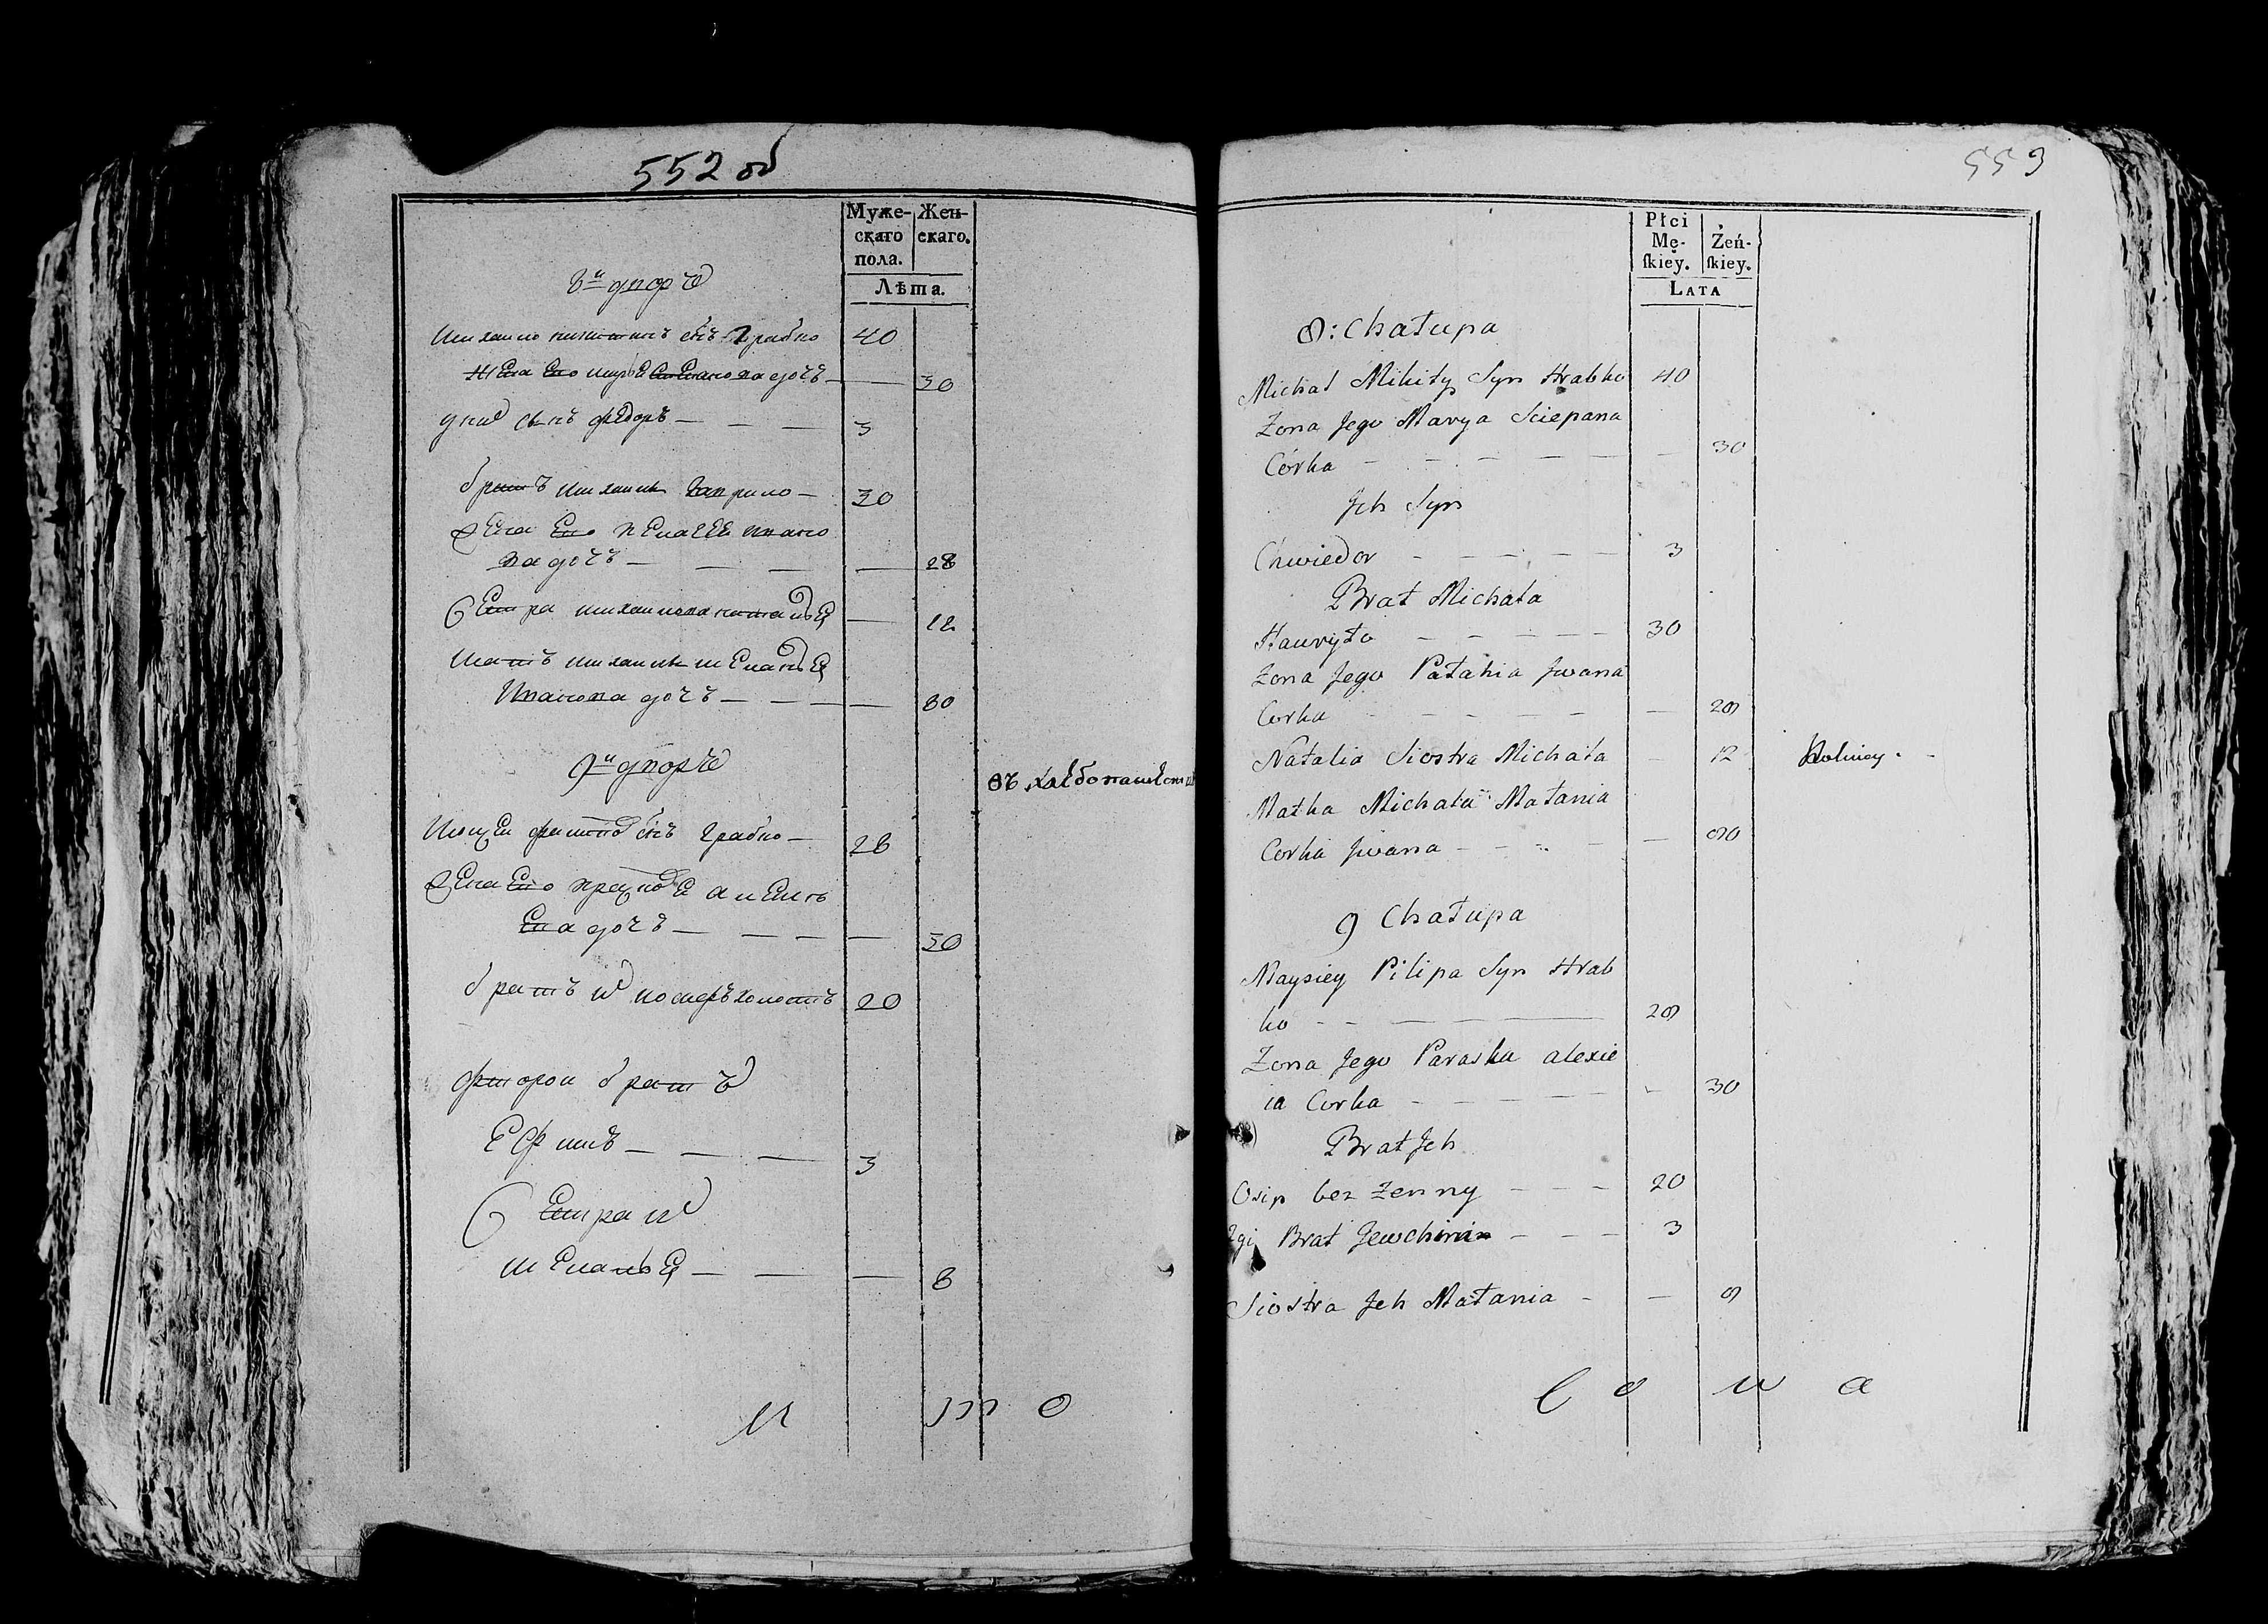 552 об
Муже- Жен-
скаго скаго.
пола.
Лѣта.
8й дворъ
Михаило никитинъ снъ Грабко 40
жена Его марья Степанова дочъ 30
у них сынъ федоръ 3
братъ михаила Гаврило 30
жена Его пелагея ивано
ва дочъ 28
Сестра михаилова наталья 12
Матъ михаила меланья
Иванова дочъ 80
9й дворъ
въ хлебопашест
Моисеи филипов снъ Грабко 28
жена Его прасковья алексе
Ева дочъ 30
братъ их иосифъ холостъ 20
фторои братъ
Ефимъ 3
Сестра их
меланья 8
И т о
553
Płci
Mę- Żeń-
skiey. skiey.
LATA
8: Chałupa
Michał Mikity Syn Hrabko 40
Zona Jego Marya Sciepana
Córka 30
Jch Syn
Chwiedor 3
Brat Michała
Hauryło 30
Zona Jego Pałahia Jwana
Corka 28
Natalia Siostra Michała 12 Rolniey
Matka Michała Małania
Corka Jwana 80
9 Chałupa
Maysiey Pilipa Syn Hrab
ko 28
Zona Jego Paraska alexie
ia Corka 30
Brat Jch
Osip bez Zenny 20
2gi Brat Jewchim 3
Siostra Jch Małania 8